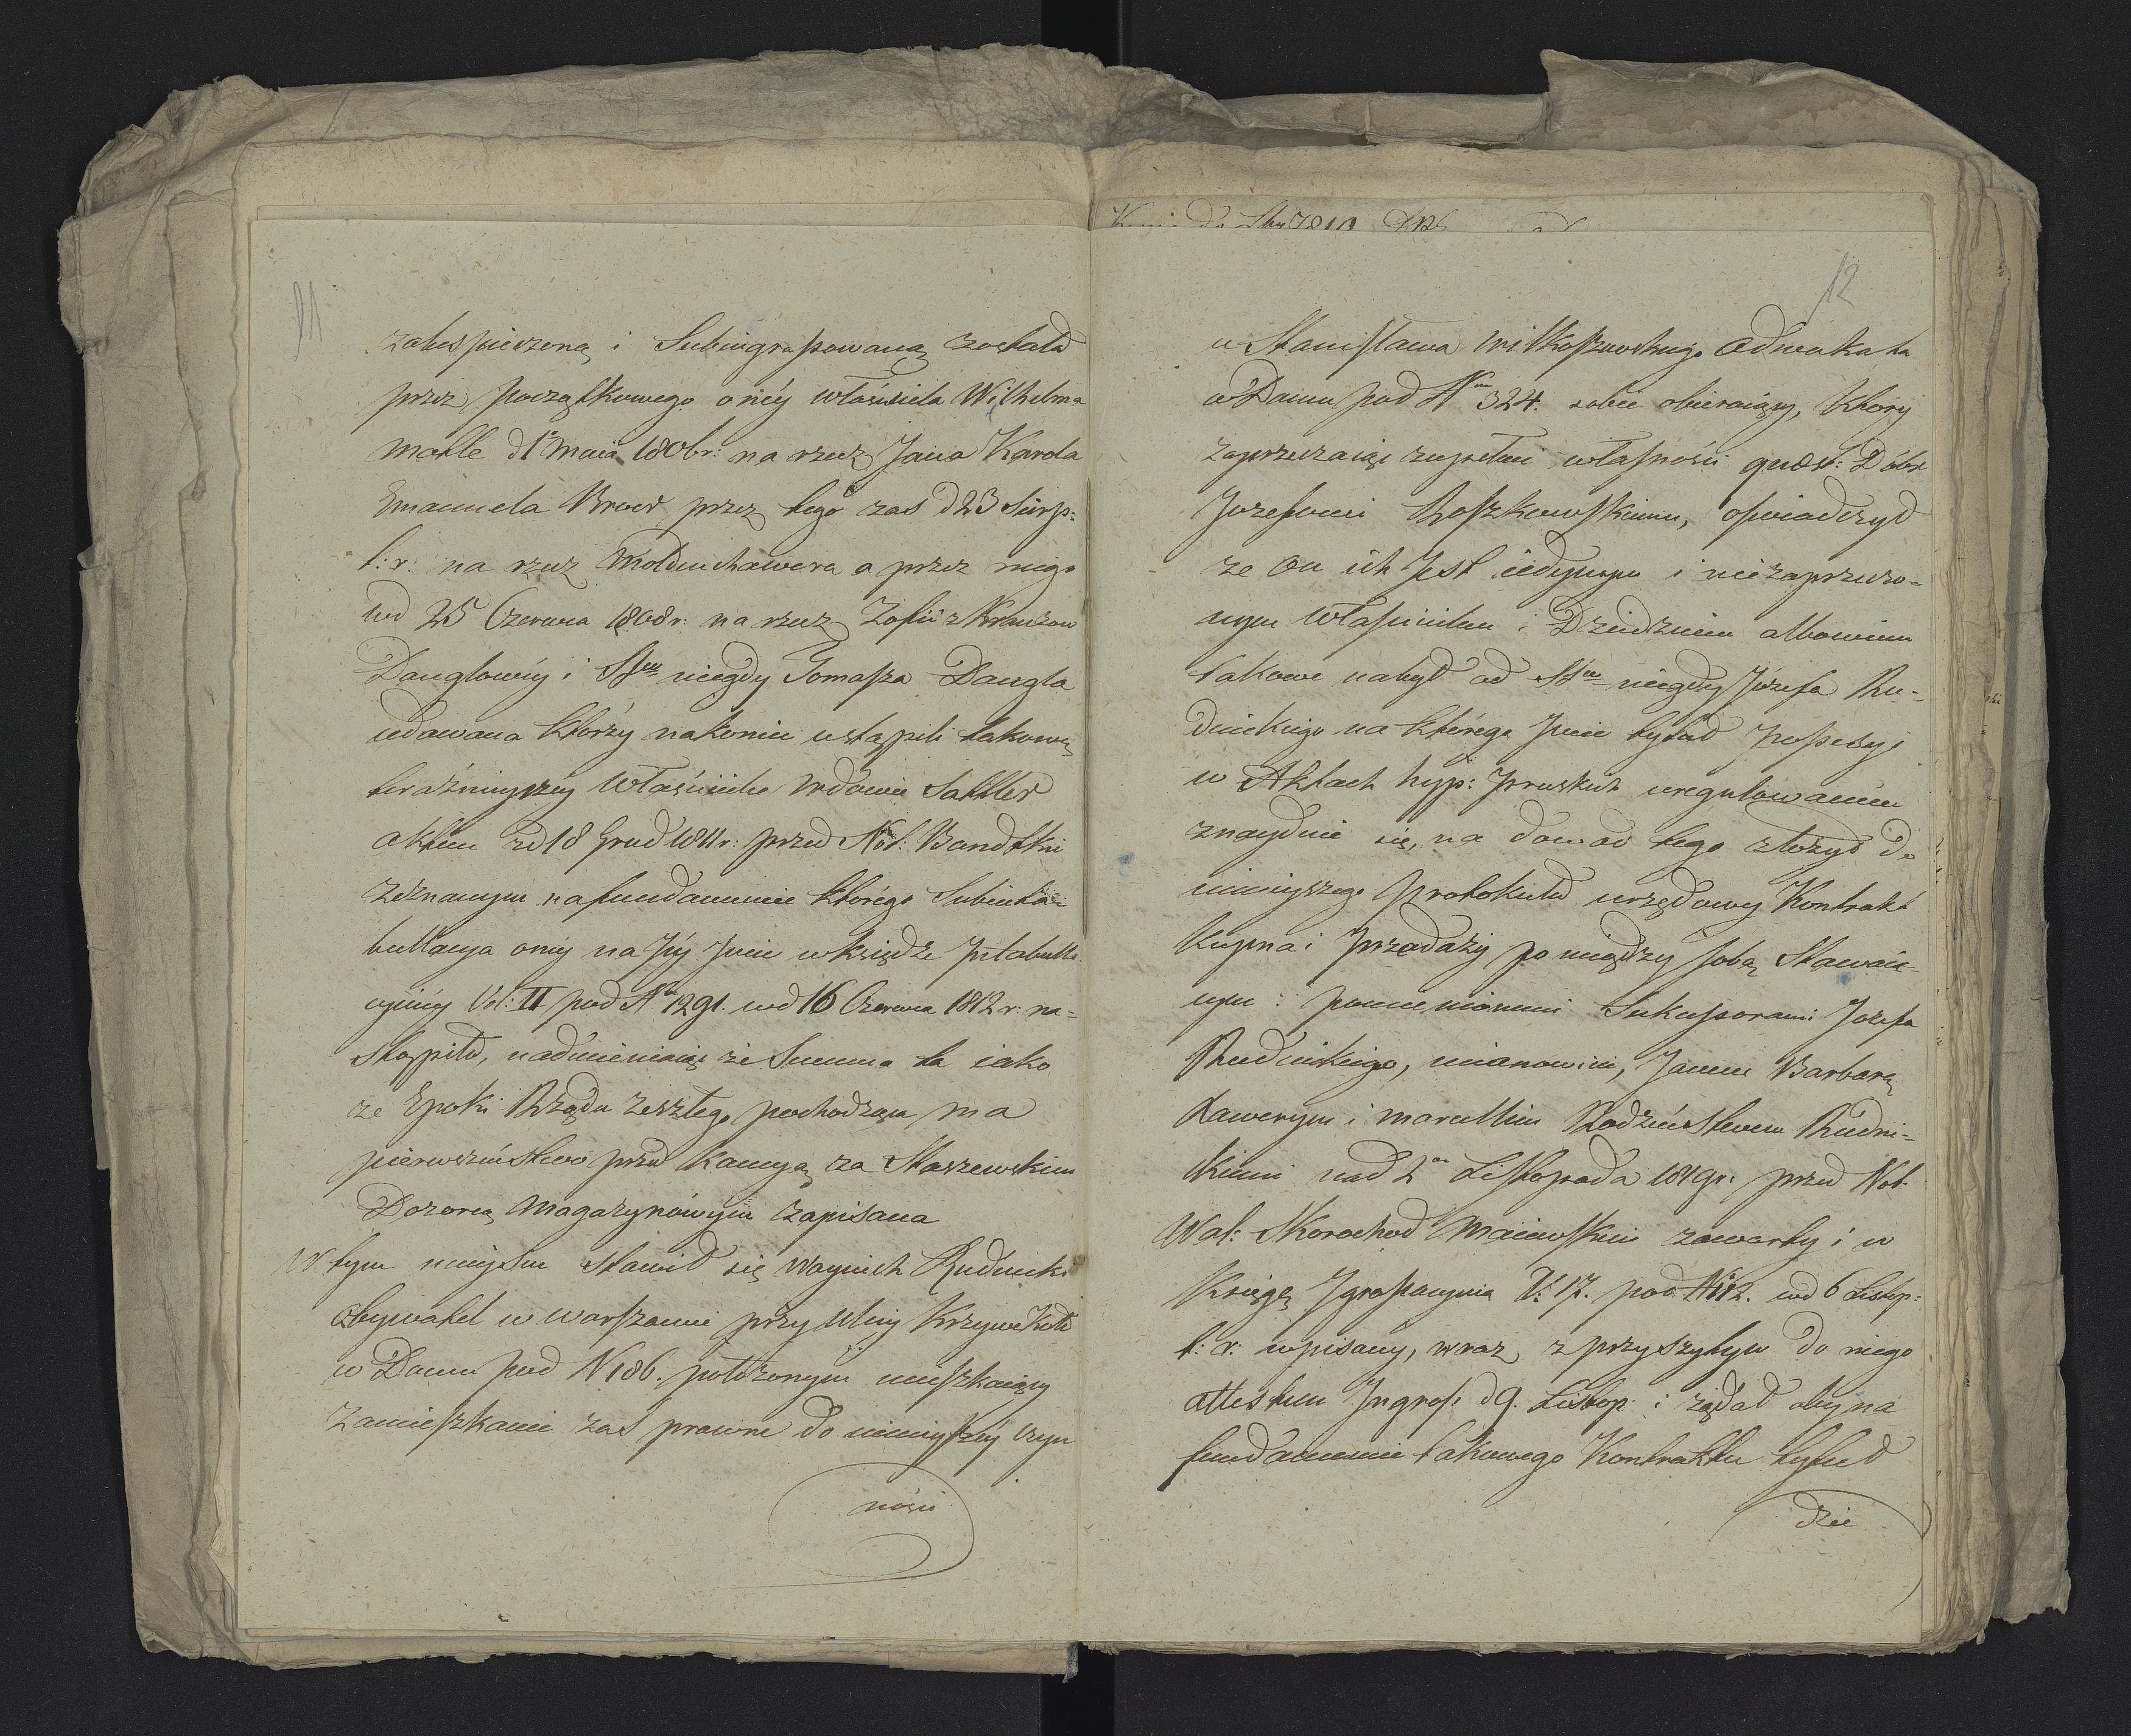 11
zabespieczoną i Subingrossowaną została
przez początkowego onéy właściciela Wilhelma
Malle d 1 Maia 180br: na rzecz Jana Karola
Emanuela Broer przez tego zas d 23 Sierp:
t: r: na rzecz a przez niego
wd 25 Czerwca 1808 r: na rzecz Zofii z Kranzow
Danglowéy i SSrów niegdy Tomasza Dangla
udawana którzy nakoniec ustąpili takową
teraźnieyszéy Właścicielce Wdowie Sattler
aktem zd 18 Grud 1811 r: przed Not: Bandtkie
zeznanym na fundamencie którego Subinta-
bullacya onéy na Jéy Jmie w księdze Jntabulla
cyinéy Vol: II pod No 1291. wd 16 Czerwca 1812 r: na=
stąpiła, nadmieniaiąc że Summa ta iako
ze Epoki Rządu zeszłego pochodząca ma
pierwszeństwo przed Kaucyą za Staszewskim
Dozorcą Magazynowym zapisana
W tym mieyscu stawił się Woyciech Rudnicki
Obywatel w Warszawie przy Ulicy Krzywe Koło
w Domu pod N 186. położonym mieszkaiący
Zamieszkanie zas prawne do ninieyszéy czyn
ności
12
u Stanisława Witkoszewskiego Adwokata
w Domu pod Nrm 324. sobie obieraiący, który
zaprzeczaiąc zupełnie własności quest: Dóbr
Jozefowi Roszkowskiemu, oświadczył
ze on ich Jest iedynym i niezaprzeczo-
nym Właścicielem i Dziedzicem albowiem
takowe nabył od SSrów niegdy Józefa Ru-
dnickiego na którego Jmie tytuł possessyi
w Aktach hyp: Pruskich uregulowanem
znayduie się, na dowód tego złożył do
ninieyszego Protokułu urzędowy Kontrakt
Kupna i Przedaży pomiędzy sobą Stawaią-
cym i pomienionemi Sukcessorami Jozefa
Rudnickiego, mianowicie, Janem Barbarą
Xawerym i Marcellim Rodzeństwem Rudni-
ckiemi wd 2go Listopada 1819r: przed Not:
Wal: Skorochod Maiewskim zawarty i w
Księgę Jgrossacyina V: 17. pod N 12. wd 6 Listop:
t: r: wpisany, wraz z przyszytym do niego
attestem Jngross: d 9. Listop: i żądał aby na
fundamencie takowego Kontraktu tytuł
dzie